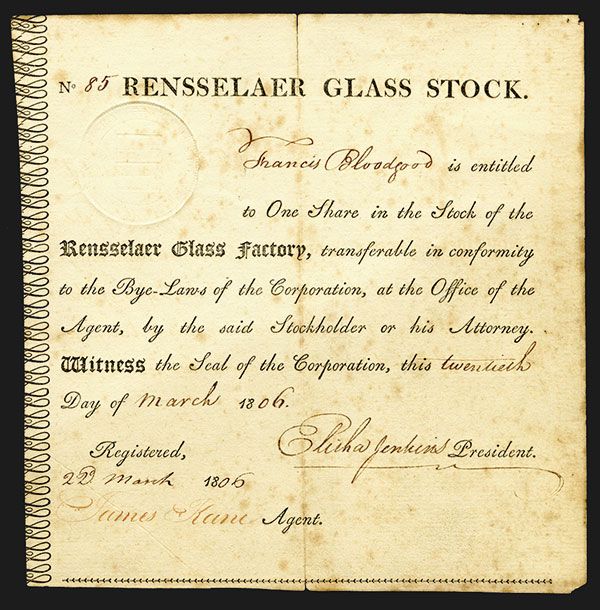 No 85 RENSSELAER GLASS STOCK.
Francis Bloodgood is entitled
to One Share in the Stock of the
Rensselaer Glass Factory, transferable in conformity
to the Bye-Laws of the Corporation, at the Office of the
Agent, by the said Stockholder or his Attorney.
Witness the Seal of the Corporation, this twentieth
Day of March 1806.
Elisha Jenkins President.
Registered,
22d March 1806
James Kane Agent.